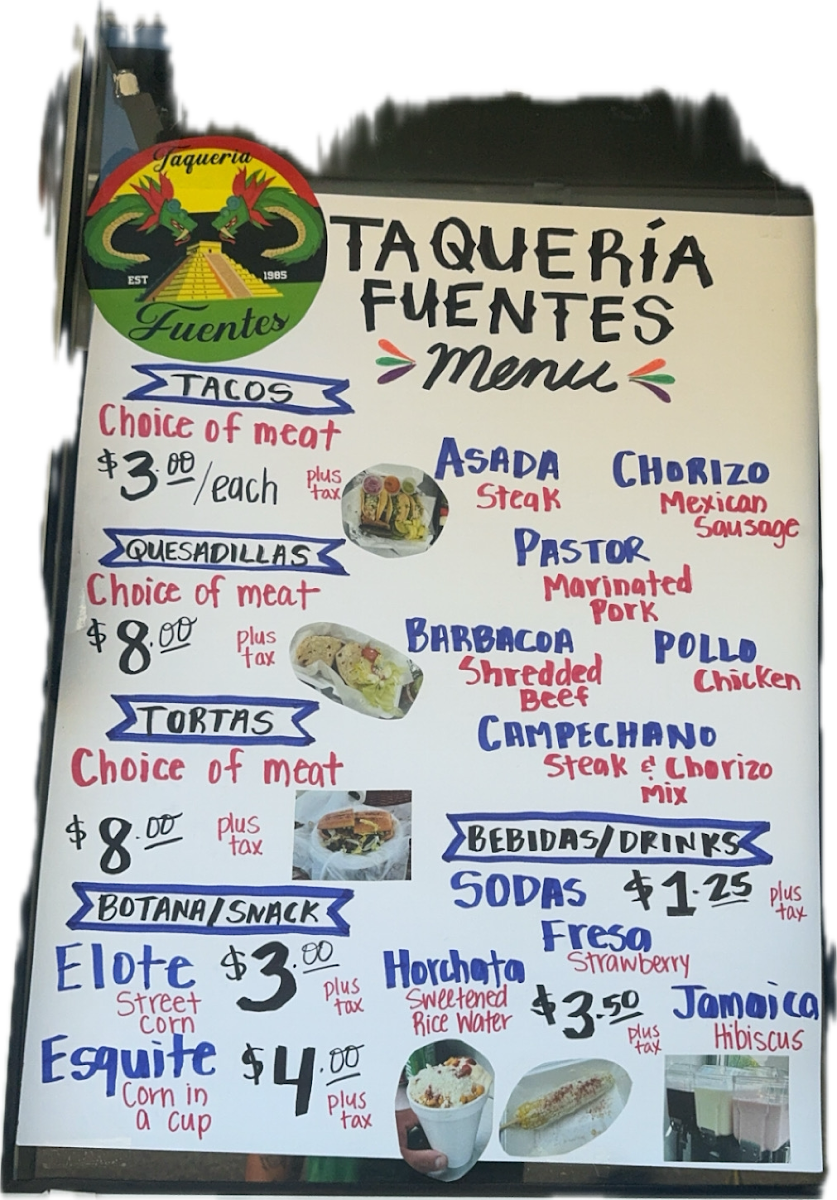 Taquería
EST 1985
Fuentes
TAQUERÍA
FUENTES
Menu
TACOS
Choice of meat
$3.00/each plus
tax
QUESADILLAS
Choice of meat
$8.00 plus
tax
TORTAS
Choice of meat
$8.00 plus
tax
BOTANA/SNACK
Elote $3.00 plus
tax
Street
corn
Esquite $4.00 plus
tax
Corn in
a cup
ASADA
Steak
CHORIZO
Mexican
Sausage
PASTOR
Marinated
Pork
BARBACOA
Shredded
Beef
POLLO
Chicken
CAMPECHANO
Steak & Chorizo
Mix
BEBIDAS/DRINKS
SODAS $1.25 plus
tax
Fresa
Strawberry
Horchata
Sweetened
Rice Water
$3.50
plus
tax
Jamaica
Hibiscus